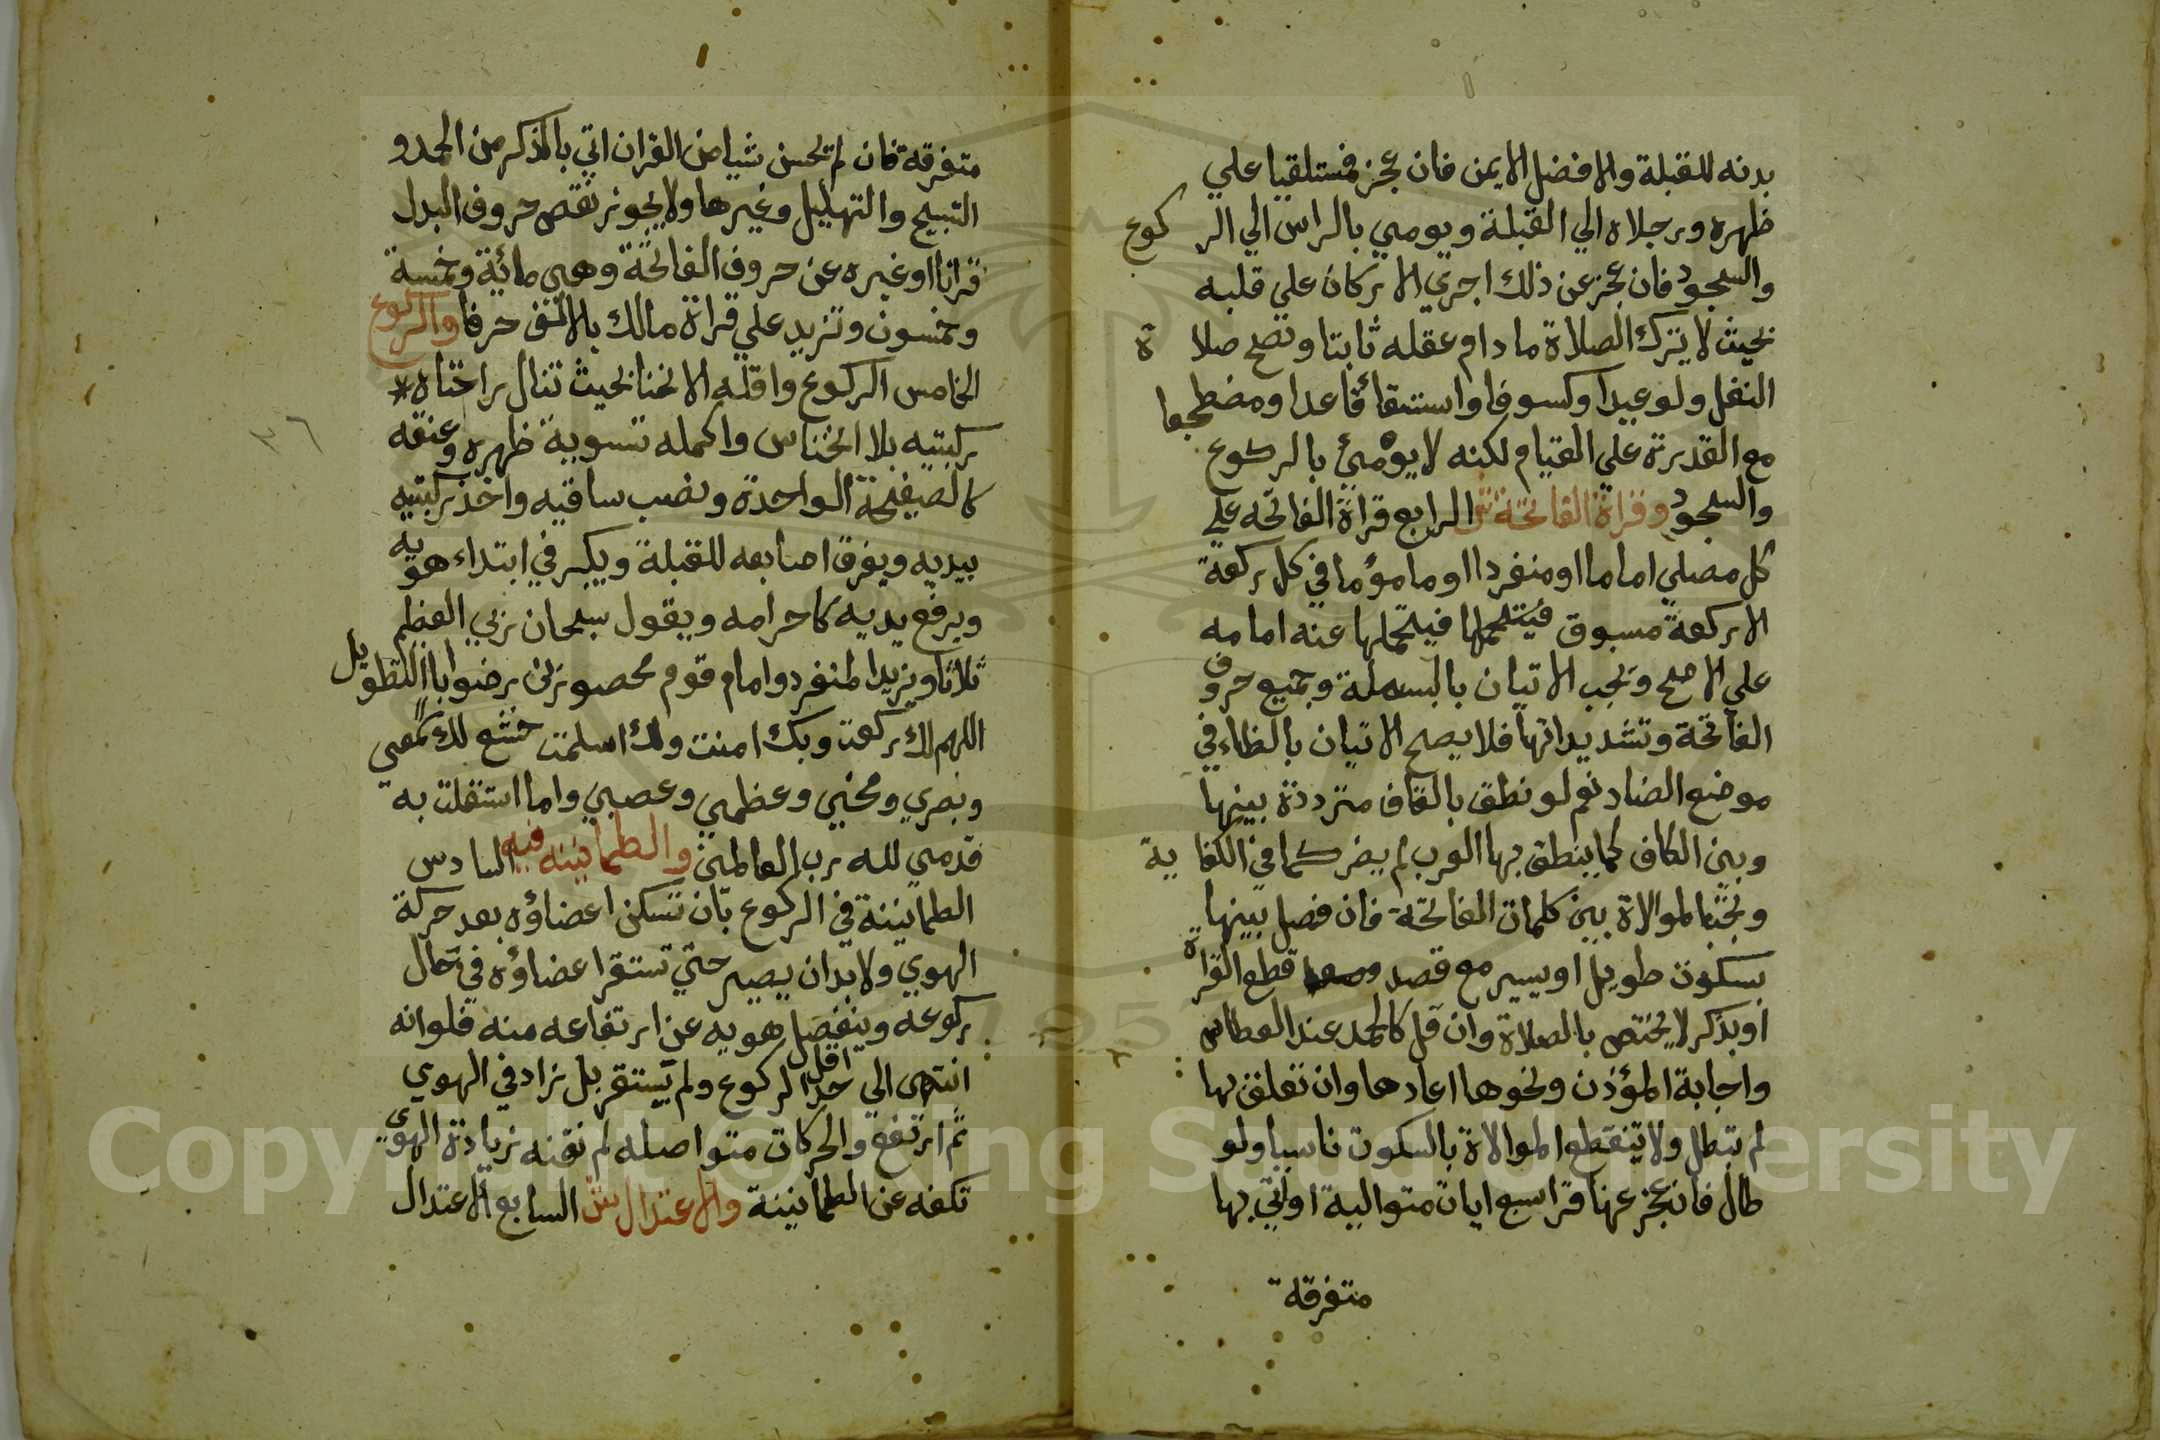 بدنه للقبلة والافضل الايمن فان عجز فمستلقيا علي
ظهره ورجلاه الي القبلة ويومي بالراس الي الركوع
والسجود فان عجز عن ذلك اجري الاركان علي قلبه
بحيث لا يترك الصلاة مادام عقله ثابتا وتصح صلاة
النفل ولو عيدا وكسوفا واستسقا قاعدا ومضطجعا
مع القدرة علي القيام لكنه لا يومئ بالركوع
والسجود وقراة الفاتحة ش الرابع قراة الفاتحه علي
كل مصلي اماما او منفردا او ماموما في كل ركعة
الا ركعة مسبوق فيتحملها عنه امامه
علي الاصح وتجب الاتيان بالبسملة وجميع حروف
الفاتحة وتشديداتها فلا يصح الاتيان بالظاء في
موضع الضاد نعم لو نطق بالقاف مترددة بينها
وبين الكاف كما ينطق بها العرب لم يضر كما في الكفاية
وتجب الموالاة بين كلمات الفاتحة فان فصل بينها
بسكوت طويل او يسير مع قصد قطع القراة
او بذكر لا يختص بالصلاة وان قل كالحمد عند العطاس
واجابة المؤذن ونحوها اعادها وان تعلق بها
لم تبطل ولا تنقطع الموالاة بالسكوت ناسيا ولو
طال فان عجز عنها قرا سبع ايات متوالية او اتي بها
متفرقة
متفرقة فان لم تحسن شيا من القران اتي بالذكر من الحمد و
التسبيح والتهليل وغيرها ولا يجوز نقص حروف البدل
قرانا او غيره عن حروف الفاتحة وهي مائة وخمسة
وخمسون وتزيد علي قراة مالك بالالف حرفا والركوع
الخامس الركوع واقله الانحنا بحيث تنال راحتاه *
ركبتيه بلا انخناس واكمله تسوية ظهره وعنقه
كالصفيحة الواحدة ونصب ساقيه واخذ ركبتيه
بيديه ويفرق اصابعه للقبلة ويكبر في ابتداء هويه
ويرفع يديه كاحرامه ويقول سبحان ربي العظيم
ثلاثا ويزيد المنفرد وامام قوم محصورين رضوا باالتطويل
اللهم لك ركعت وبك امنت ولك اسلمت خشع لك سمعي
وبصري ومخي وعظمي وعصبي واما استقلت به
قدمي لله رب العالمين والطمانينه فيه السادس
الطمانينة في الركوع بان تسكن اعضاؤه بعد حركة
الهوي ولا بد ان يصير حتي تستقر اعضاؤه في حال
ركوعه وينفصل هويه عن ارتفاعه منه فلو انه
انتهى الي حد اقل الركوع ولم يستقر بل زاد في الهوي
ثم ارتفع والحركات متواصله لم تقنه زيادة الهوي
تكفه عن الطمانينة والاعتدال ش السابع الاعتدال
٣٦
1957
Copyright © King Saud University